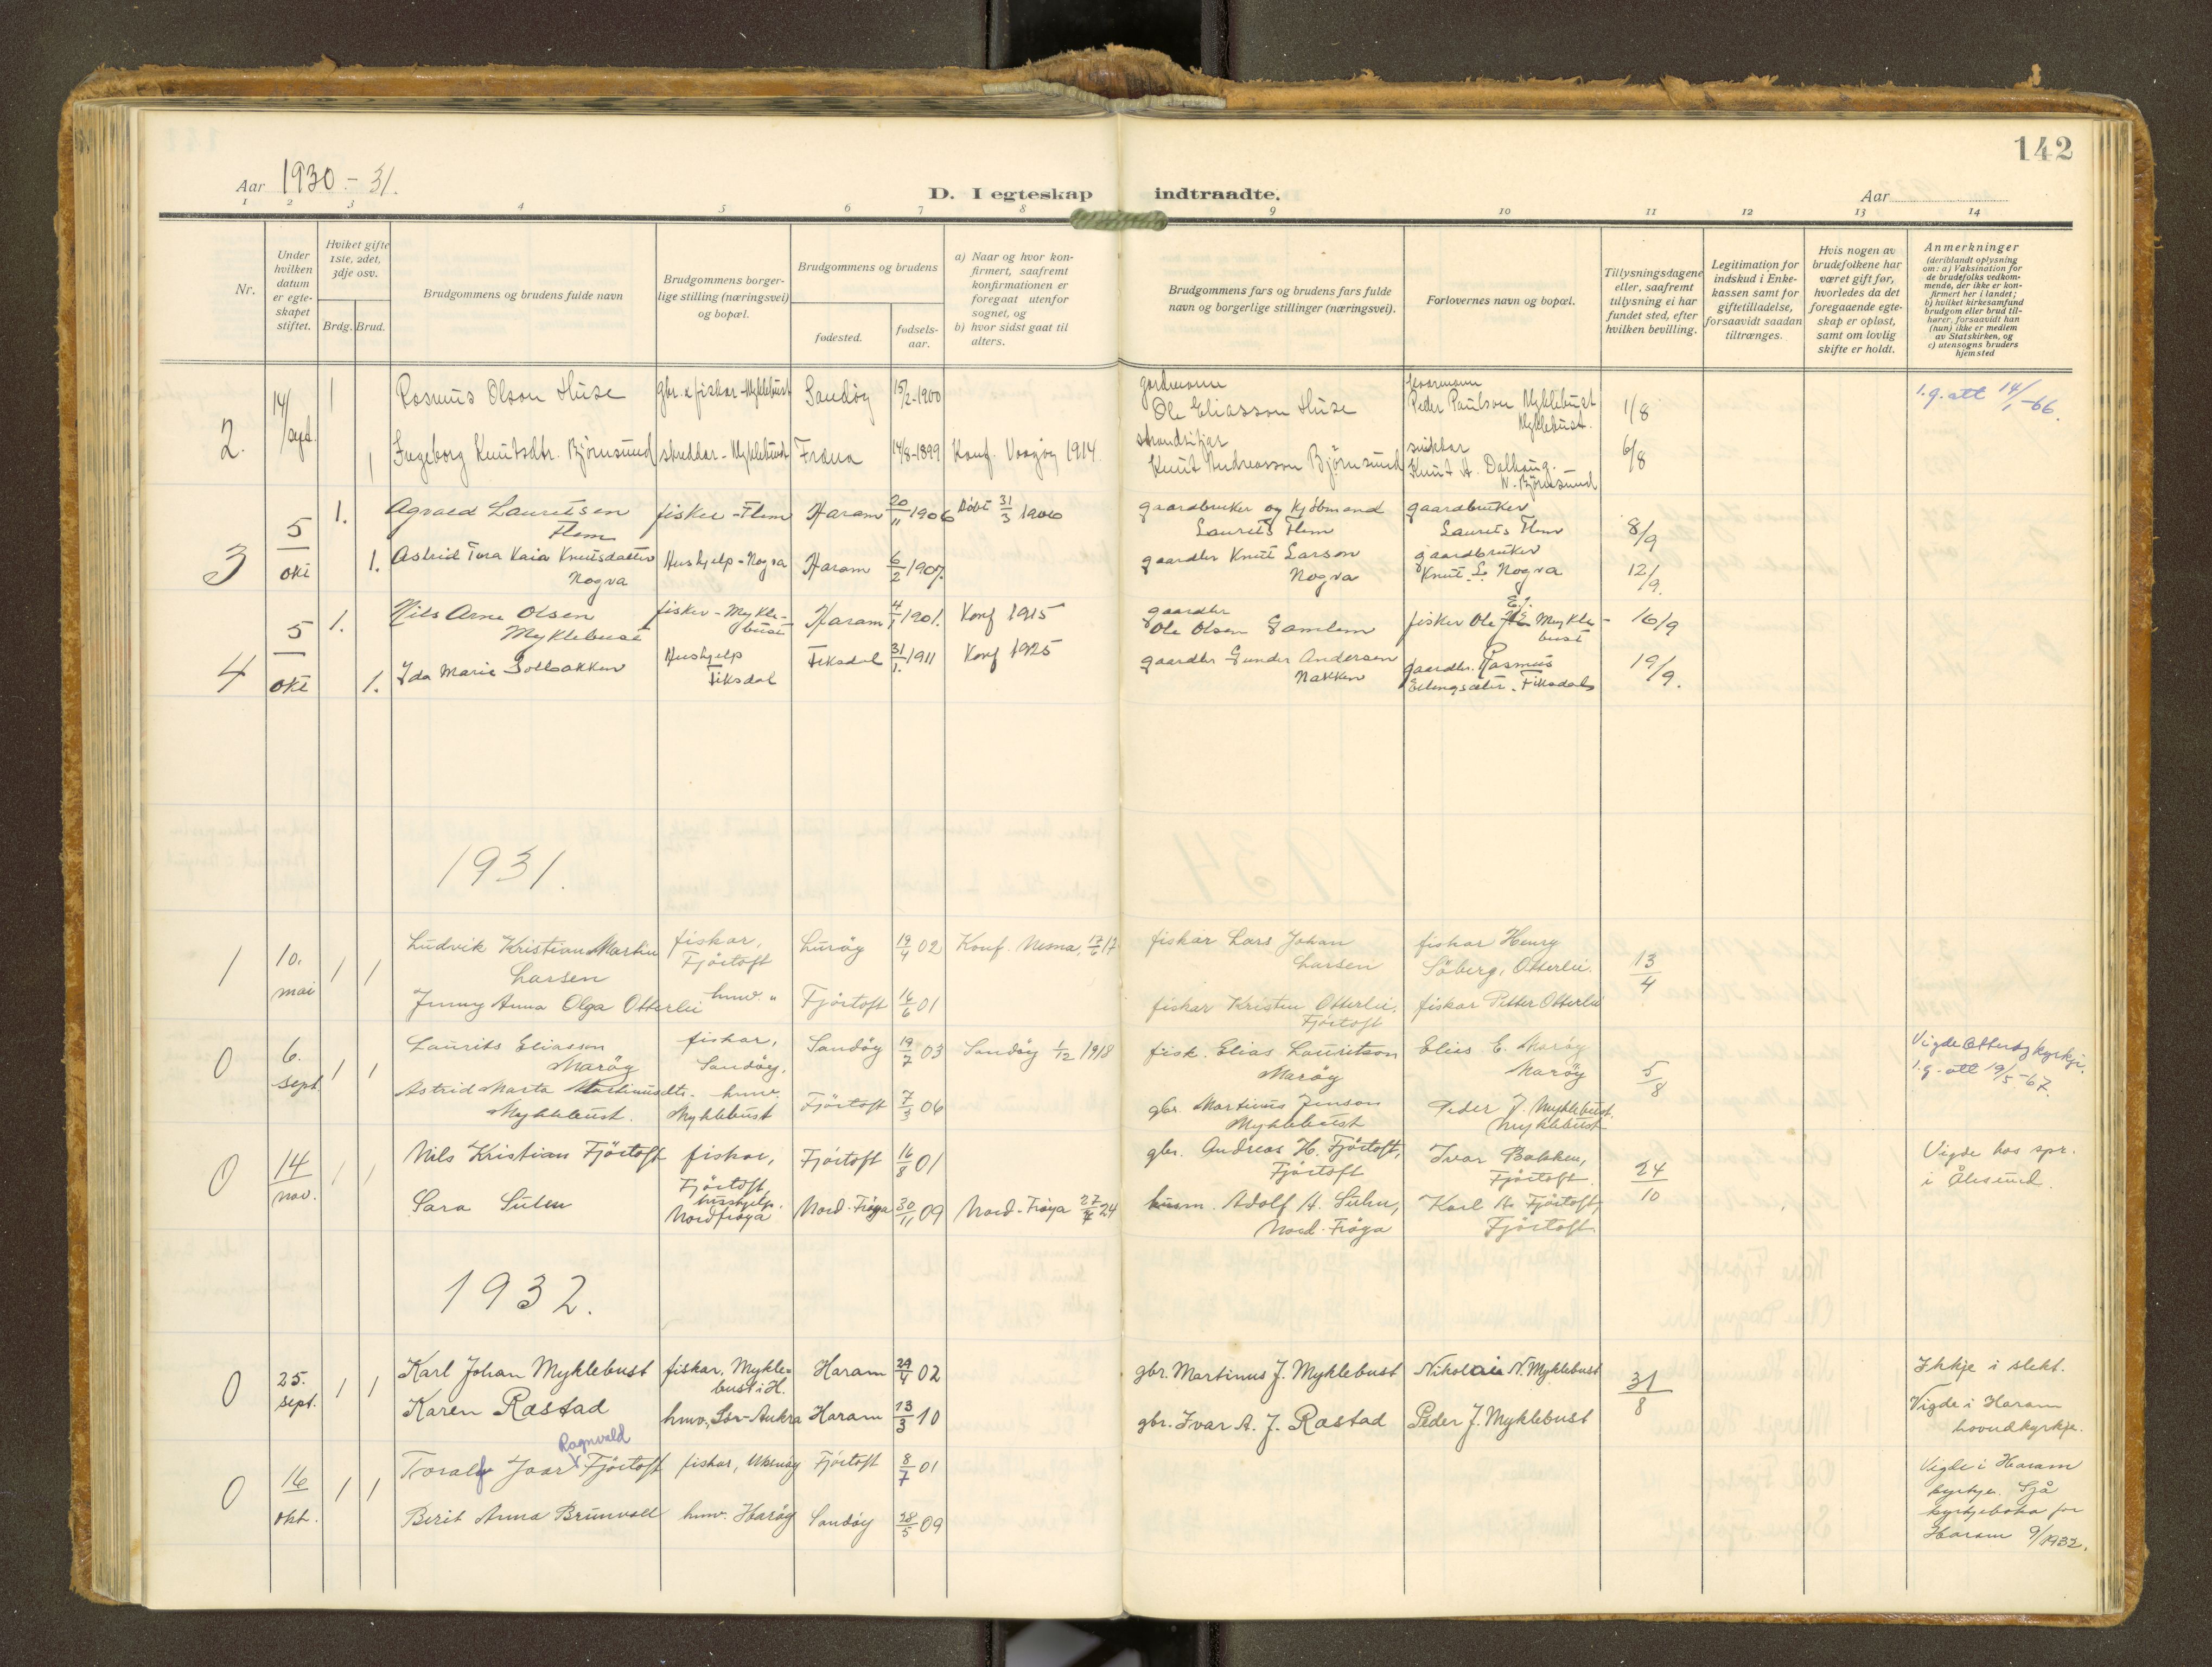 142
Aar 1930.- 31.
D. I egteskap indtraadte.
Aar
1 2 3 4 5 6 7 8 9 10 11 12 13 14
Nr.
Under hvilken datum er egteskapet stiftet.
Hviket gifte 1ste, 2det, 3dje osv.
Brdg. Brud.
Brudgommens og brudens fulde navn
Brudgommens borgerlige stilling (næringsvei) og bopæl.
Brudgommens og brudens
fødested.
fødselsaar.
a) Naar og hvor konfirmert, saafremt konfirmationen er foregaat utenfor sognet, og
b) hvor sidst gaat til alters.
Brudgommens fars og brudens fars fulde navn og borgerlige stillinger (næringsvei).
Forlovernes navn og bopæl.
Tillysningsdagene eller, saafremt tillysning ei har fundet sted, efter hvilken bevilling.
Legitimation for indskud i Enkekassen samt for giftetilladelse, forsaavidt saadan tiltrænges.
Hvis nogen av brudefolkene har været gift før, hvorledes da det foregaaende egteskap er opløst, samt om lovlig skifte er holdt.
Anmerkninger
(deriblandt oplysning om: a) Vaksination for de brudefolks vedkommende, der ikke er konfirmert her i landet;
b) hvilket kirkesamfund brudgom eller brud tilhører, forsaavidt han (hun) ikke er medlem av Statskirken, og
c) utensogns bruders hjemsted
2. 14/sept. 1 Rasmus Olson Huse gbr. & fiskar - Myklebust Sandøy 15/2-1900 Ole Eliasson Huse Peder Paulson Myklebust Myklebust. 1/8 1.g. att 14/1-66.
1 Ingeborg Knutsdtr. Bjørnsund skreddar - Myklebust Fræna 14/8-1899 Konf. Vaagøy 1914. Knut Andreasson Bjørnsund Knut A. Dalhaug. N. Bjørnsund 6/8
3 5/okt 1. Agvald Lauritsen Flem fisker - Flem Haram 20/11 1906 Døbt 31/3 1906 gaardbruker og kjøbmand Laurits Flem gaardbruker Laurits Flem 8/9
1. Astrid Tora Kaia Knutsdatter Nogva Hushjelp - Nogva Haram 6/2 1907. gaardbr Knut Larson Nogva gaardbruker Knut L. Nogva 12/9.
4 5/okt 1. Nils Arne Olsen Myklebust fisker - Myklebust Haram 4/1 1901. Konf 1915 gaardbr Ole Olsen Gamlem fisker Ole E. Myklebust 16/9
1. Ida Marie Solbakken Hushjelp Fiksdal Fiksdal 31/1. 1911 Konf 1925 gaardbr Gunder Andersen Nakken gaardbr. Rasmus Fiksdal 19/9.
1931.
1 10. mai 1 1 Ludvik Kristian Martin Larsen fiskar, Fjörtoft Lurøy 19/4 02 Konf. Nesna, 17/6 17 fiskar Lars Johan Larsen fiskar Henry Söberg, Otterlei. 13/4
Jenny Anna Olga Otterlei husv. " Fjörtoft 16/6 01 fiskar Kristen Otterlei, Fjörtoft fiskar Petter Otterlei
0 6. sept 1 1 Laurits Eliasson Marøy fiskar, Sandøy, Sandøy 19/7 03 Sandøy 1/12 1918 fisk. Elias Lauritson Marøy Elias E. Marøy Marøy 5/8 Vigde Otterøy kyrkje. 1.g. att 19/5-67.
Astrid Marta Martinusdtr. Myklebust. husv. Myklebust Fjörtoft 7/3 06 gbr. Martinus Jenson Myklebust Peder J. Myklebust. Myklebust
0 14/nov. 1 1 Nils Kristian Fjörtoft fiskar, Fjörtoft, Fjörtoft 16/8 01 gbr. Andreas H. Fjörtoft, Fjörtoft Ivar Bakken, Fjörtoft. 24/10 Vigde hos spr. i Ålesund.
Sara Sulen hushjelp. Nordfrøya Nord-Frøya 30/11 09 Nord-Frøya 27/7 24 husm. Adolf A. Sulen, Nord-Frøya Karl H. Fjörtoft, Fjörtoft
1932.
0 25. sept. 1 1 Karl Johan Myklebust fiskar, Myklebust i H. Haram 24/4 02 gbr. Martinus J. Myklebust Nikolai N. Myklebust 31/8 Ikkje i slekt.
Karen Rastad husv, Sör-Aukra Haram 13/3 10 gbr. Ivar A. J. Rastad Peder J. Myklebust Vigde i Haram hovudkyrkje.
0 16/okt. 1 1 Toralf Joar Ragnvald Fjörtoft fiskar, Fjörtoft 8/7 01 Vigde i Haram kyrkje. Sjå kyrkjeboka for Haram 9/1932.
Berit Anna Brunvoll husv. Harøy Sandøy 28/5 09